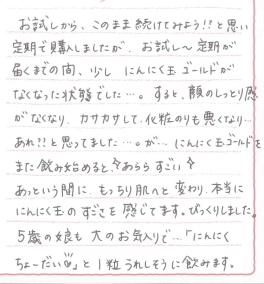 お試しから、このまま続けてみよう!!と思い
定期で購入しましたが、お試し〜定期が
届くまでの間、少し にんにく玉ゴールドが
なくなった状態でした…。すると、顔のしっとり感
がなくなり、カサカサして、化粧のりも悪くなり…
あれ?!と思ってました…。が… にんにく玉ゴールドを
また飲み始めると、あらら すごい
あっという間に、もっちり肌へと変わり、本当に
にんにく玉のすごさを感じてます。びっくりしました。
5歳の娘も大のお気入りで…「にんにく
ちょーだい」と1粒うれしそうに飲みます。